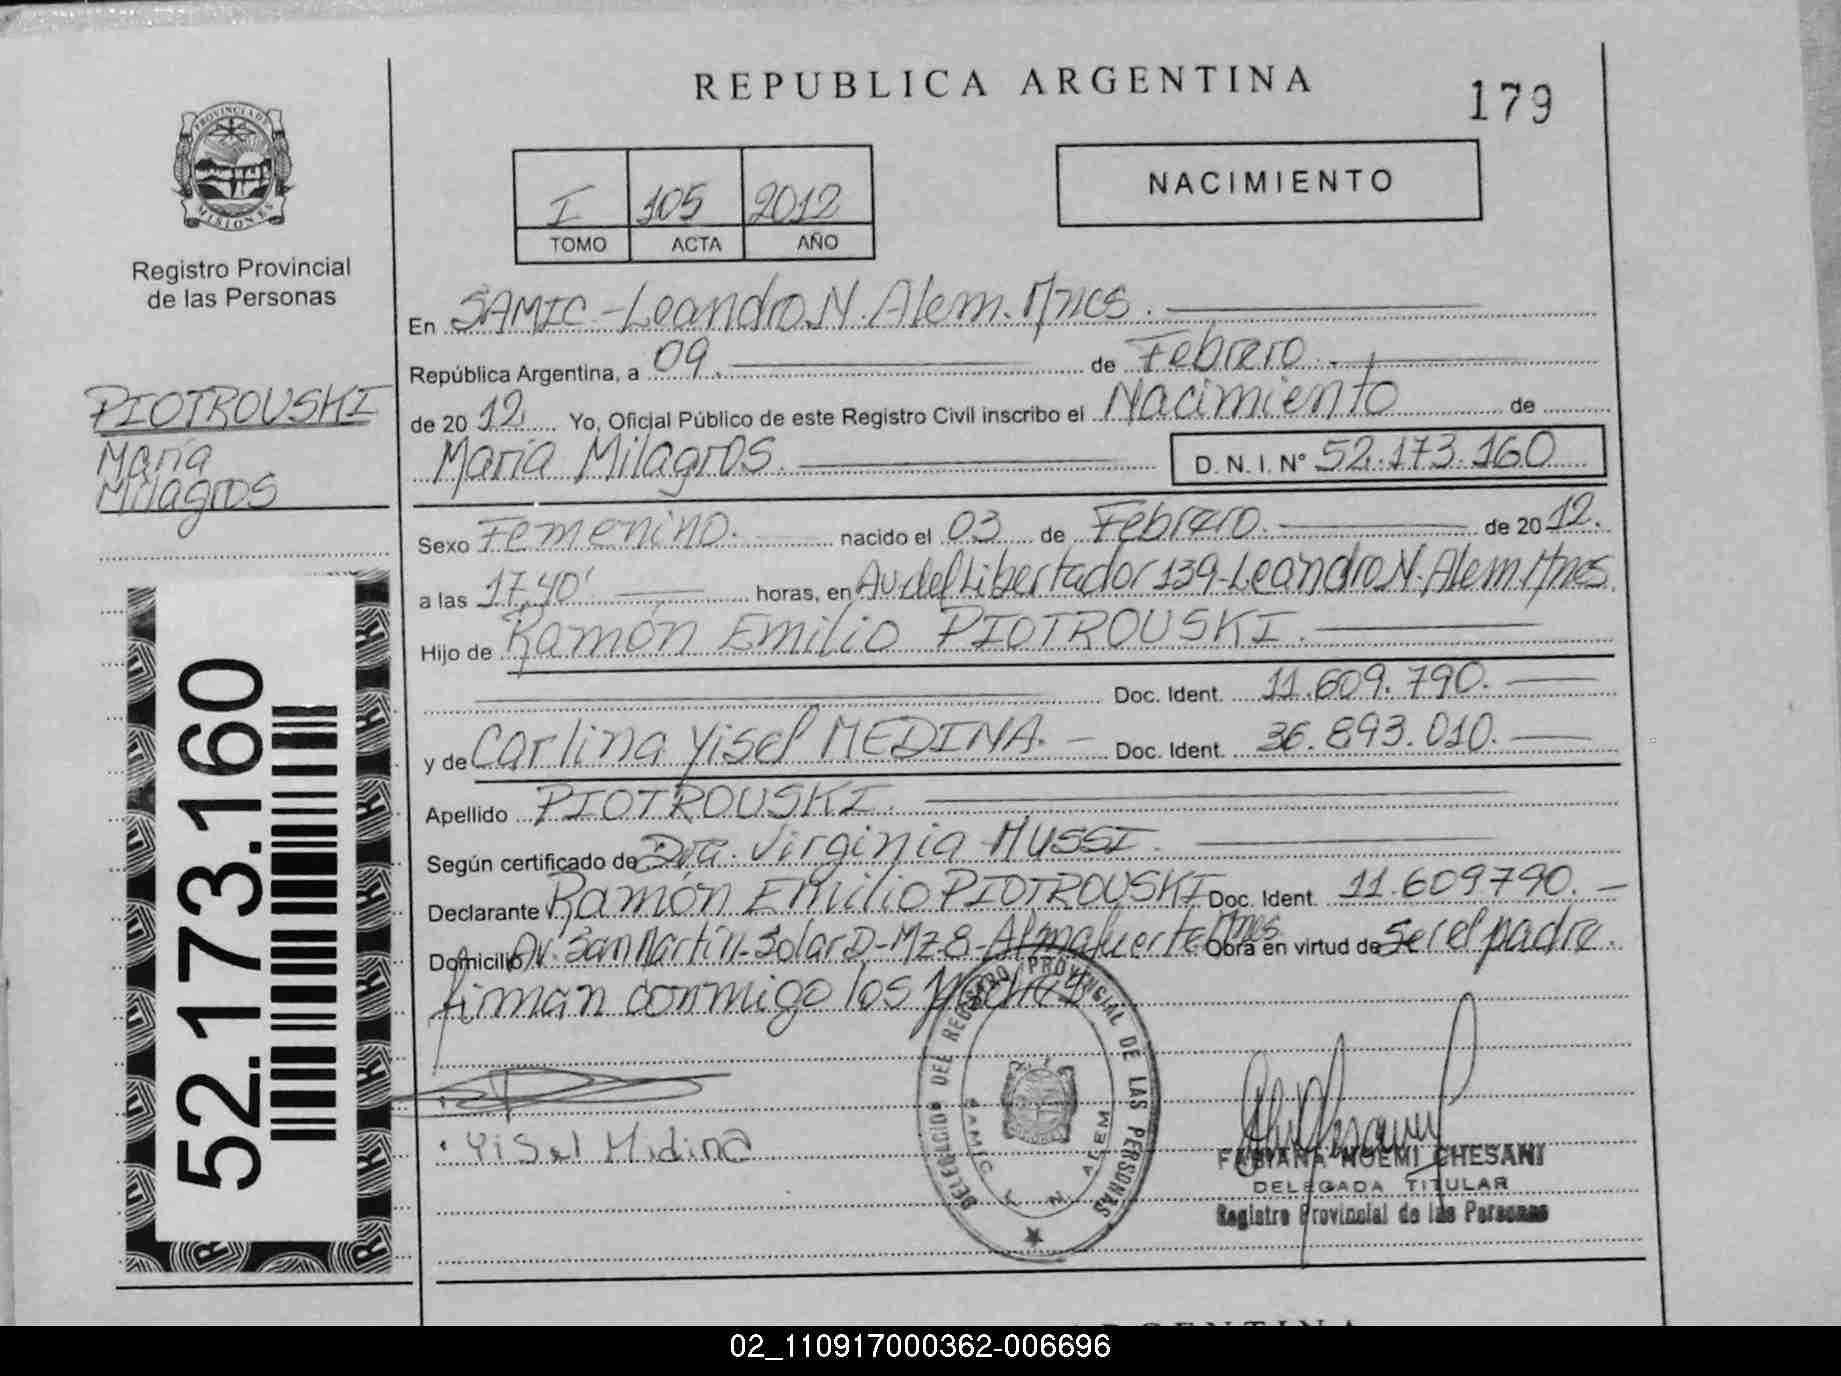 REPUBLICA ARGENTINA
179
PROVINCIA DE
MISIONES
Registro Provincial
de las Personas
I 105 2012
TOMO ACTA AÑO
NACIMIENTO
PIOTROUSKI
María
Milagros
En SAMIC - Leandro N. Alem. Mnes.
República Argentina, a 09. de Febrero.
de 2012. Yo, Oficial Público de este Registro Civil inscribo el Nacimiento de
María Milagros. D.N.I. N° 52.173.160
Sexo Femenino. nacido el 03 de Febrero. de 2012.
a las 17,40' horas, en Av del Libertador 139-Leandro N. Alem. Mnes.
Hijo de Ramón Emilio PIOTROUSKI.
Doc. Ident. 11.609.790.
y de Carlina Yisel MEDINA. - Doc. Ident. 36.893.010.
Apellido PIOTROUSKI.
Según certificado de Dra. Virginia MUSSI.
Declarante Ramón Emilio PIOTROUSKI Doc. Ident. 11.609790.
Domicilio Av. San Martín-Solar D-Mz 8-Almafuerte Mnes Obra en virtud de Ser el padre.
firman conmigo los padres
Yisel Midina
DELEGACION DEL REGISTRO PROVINCIAL DE LAS PERSONAS
SAMIC L N ALEM
FABIANA NOEMI CHESANI
DELEGADA TITULAR
Registro Provincial de las Personas
52.173.160
ARGENTINA
02_110917000362-006696